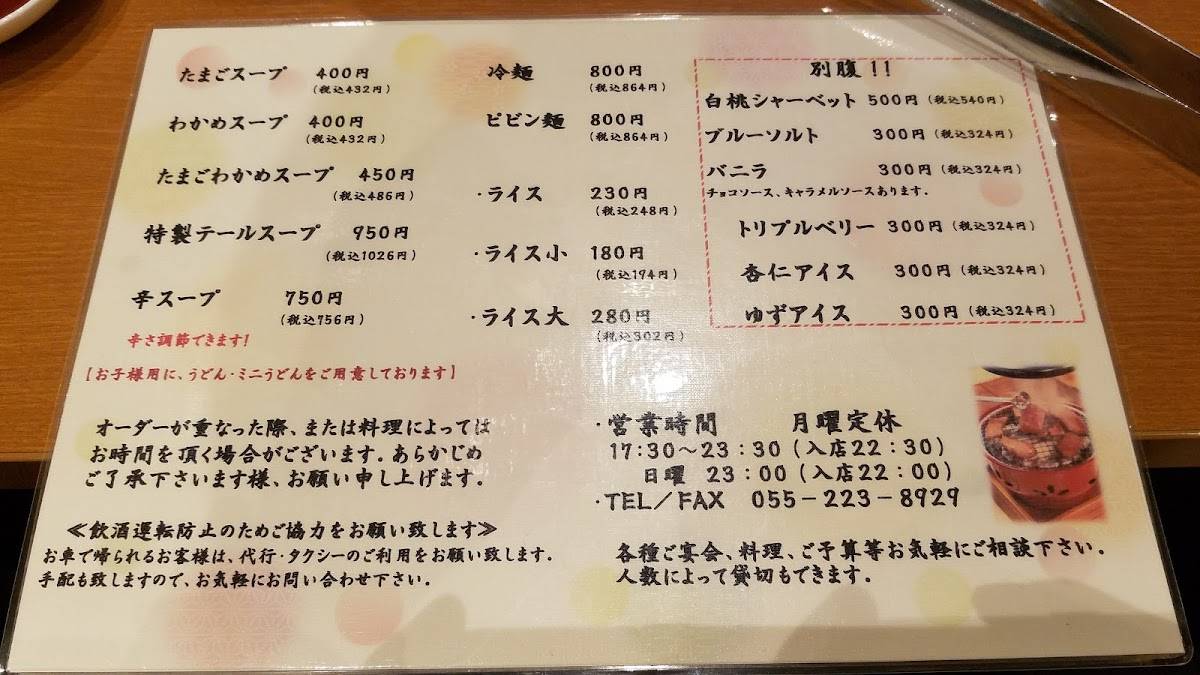 たまごスープ 400円
(税込432円)
わかめスープ 400円
(税込432円)
たまごわかめスープ 450円
(税込486円)
特製テールスープ 950円
(税込1026円)
辛スープ 750円
(税込756円)
辛さ調節できます!
【お子様用に、うどん・ミニうどんをご用意しております】
冷麺 800円
(税込864円)
ビビン麺 800円
(税込864円)
・ライス 230円
(税込248円)
・ライス小 180円
(税込194円)
・ライス大 280円
(税込302円)
別腹!!
白桃シャーベット 500円(税込540円)
ブルーソルト 300円(税込324円)
バニラ 300円(税込324円)
チョコソース、キャラメルソースあります.
トリプルベリー 300円(税込324円)
杏仁アイス 300円(税込324円)
ゆずアイス 300円(税込324円)
オーダーが重なった際、または料理によっては
お時間を頂く場合がございます.あらかじめ
ご了承下さいます様、お願い申し上げます.
≪飲酒運転防止のためご協力をお願い致します≫
お車で帰られるお客様は、代行・タクシーのご利用をお願い致します.
手配も致しますので、お気軽にお問い合わせ下さい.
・営業時間 月曜定休
17:30~23:30(入店22:30)
日曜 23:00(入店22:00)
・TEL/FAX 055-223-8929
各種ご宴会、料理、ご予算等お気軽にご相談下さい.
人数によって貸切もできます.